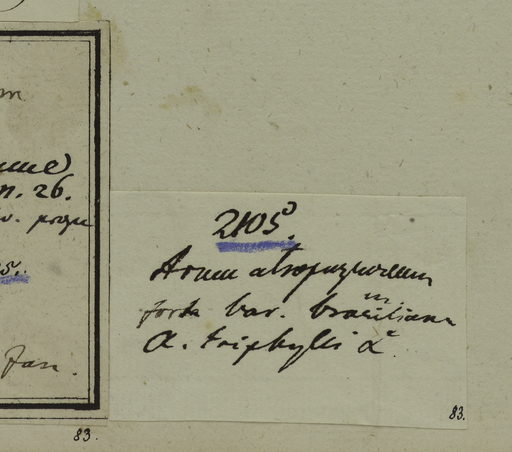 n. 26.
Jan.
83.
2105.
Arum atropurpureum
forte var. brasiliana
A. triphylli α
83.